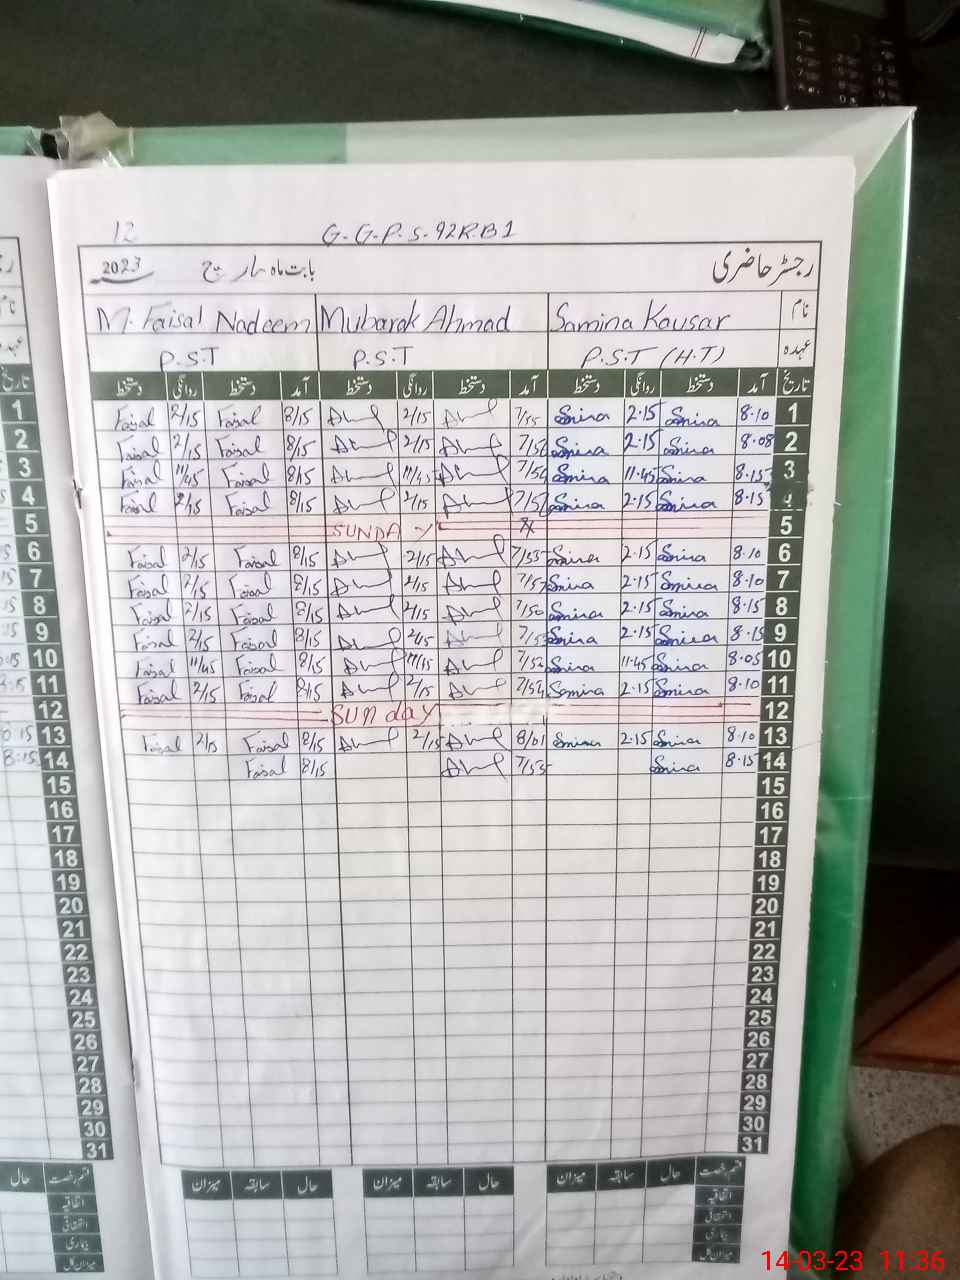 12 G.G.P.S. 92R.B1
رجسٹر حاضری بابت ماہ مارچ 2023
نام Samina Kausar Mubarak Ahmad M. Faisal Nadeem
عہدہ P.S.T (H.T) P.S.T P.S.T
تاریخ آمد دستخط روانگی دستخط آمد دستخط روانگی دستخط آمد دستخط روانگی دستخط
1 8.10 Samina 2.15 Samina 7/55 2/15 8/15 Faisal 2/15 Faisal
2 8.08 Samina 2.15 Samina 2/15 8/15 Faisal 2/15 Faisal
3 8.15 Samina 11.45 Samina 11/45 8/15 Faisal 11/45 Faisal
4 8.15 Samina 2.15 Samina 2/15 8/15 Faisal 2/15 Faisal
5 SUNDAY
6 8.10 Samina 2.15 Samina 7/55 2/15 8/15 Faisal 2/15 Faisal
7 8.10 Samina 2.15 Samina 2/15 8/15 Faisal 2/15 Faisal
8 8.15 Samina 2.15 Samina 7/50 2/15 8/15 Faisal 2/15 Faisal
9 8.15 Samina 2.15 Samina 2/15 8/15 Faisal 2/15 Faisal
10 8.05 Samina 11.45 Samina 7/52 8/15 Faisal 11/45 Faisal
11 8.10 Samina 2.15 Samina 7/54 2/15 8/15 Faisal 2/15 Faisal
12 Sunday
13 8.10 Samina 2.15 Samina 8/01 2/15 8/15 Faisal 2/15 Faisal
14 8.15 Samina 7/55 8/15 Faisal
15
16
17
18
19
20
21
22
23
24
25
26
27
28
29
30
31
قسم رخصت حال سابقہ میزان حال سابقہ میزان حال سابقہ میزان
اتفاقیہ
استحقاقی
بیماری
میزان کل
14-03-23 11:36